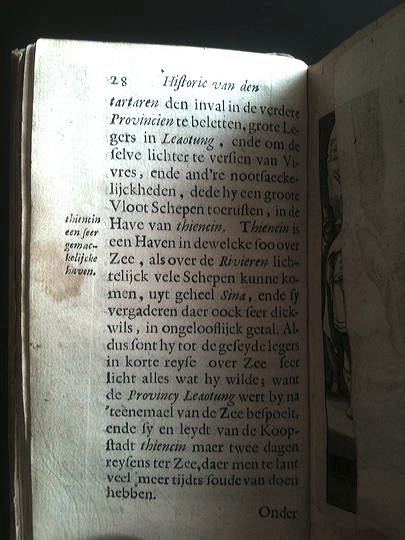 28 Historie van den
tartaren den inval in de verdere
Provincien te beletten, grote Le-
gers in Leaotung, ende om de
selve lichter te versien van Vi-
vres, ende and're nootsaecke-
lijckheden, dede hy een groote
Vloot Schepen toerusten, in de
Have van thiencin. Thiencin is
een Haven in dewelcke soo over
Zee, als over de Rivieren lich-
telijck vele Schepen kunne ko-
men, uyt geheel Sina, ende sy
vergaderen daer oock seer dick-
wils, in ongelooflijck getal. Al-
dus sont hy tot de geseyde legers
in korte reyse over Zee seer
licht alles wat hy wilde; want
de Provincy Leaotung wert by na
'teenemael van de Zee bespoelt,
ende sy en leydt van de Koop-
stadt thiencin maer twee dagen
reysens ter Zee, daer men te lant
veel meer tijdts soude van doen
hebben.
Onder
thiencin
een seer
gemac-
kelijcke
haven.